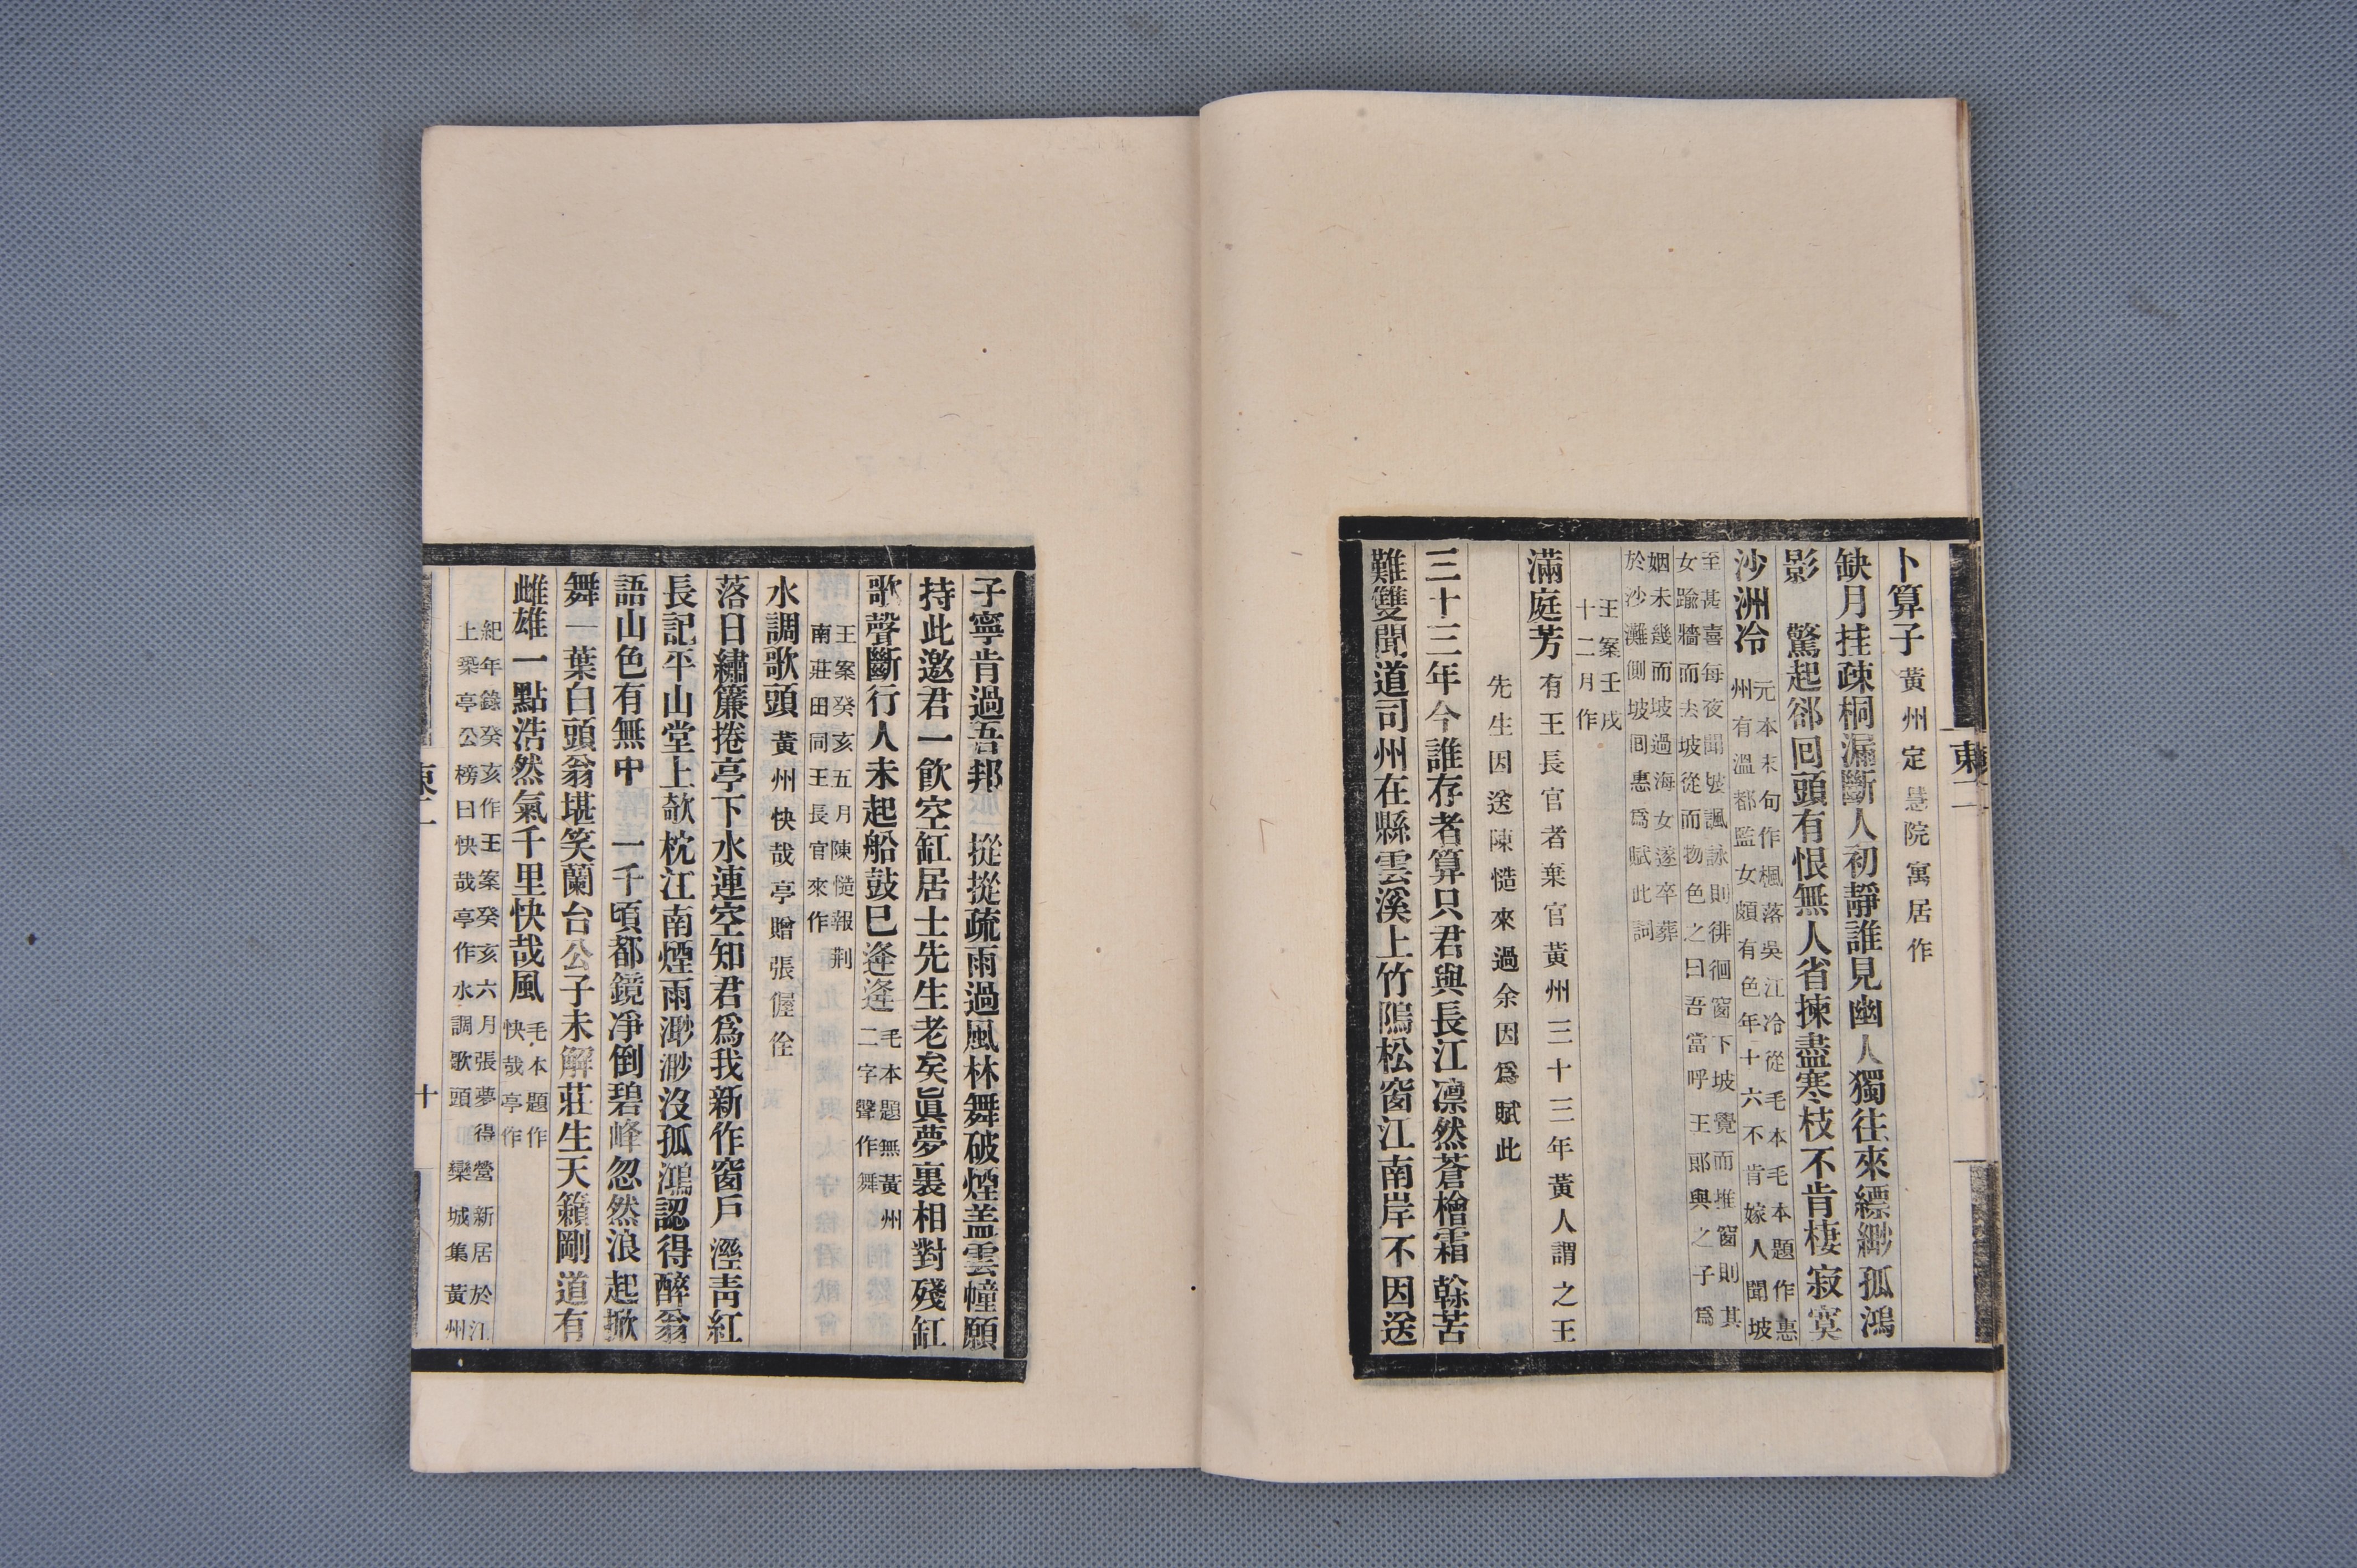 東二
卜算子 黃州定慧院寓居作
缺月挂疎桐漏斷人初靜誰見幽人獨往來縹緲孤鴻
影 驚起卻回頭有恨無人省揀盡寒枝不肯棲寂寞
沙洲冷 元本末句作楓落吳江冷從毛本毛本題作惠
州有溫都監女頗有色年十六不肯嫁人聞坡
至甚喜每夜聞坡諷詠則徘徊窗下坡覺而推窗則其
女踰牆而去坡從而物色之曰吾當呼王郎與之子爲
姻未幾而坡過海女遂卒葬
於沙灘側坡囘惠爲賦此詞
王案壬戌
十二月作
滿庭芳 有王長官者棄官黃州三十三年黃人謂之王
先生因送陳慥來過余因爲賦此
三十三年今誰存者算只君與長江凛然蒼檜霜榦苦
難雙聞道司州在縣雲溪上竹隖松窗江南岸不因送
子寧肯過吾邦 摐摐疏雨過風林舞破煙盖雲幢願
持此邀君一飲空缸居士先生老矣眞夢裏相對殘缸
歌聲斷行人未起船鼓已逄逄 毛本題無黃州
二字聲作舞
王案癸亥五月陳慥報荆
南莊田同王長官來作
水調歌頭 黃州快哉亭贈張偓佺
落日繡簾捲亭下水連空知君爲我新作窗戶溼靑紅
長記平山堂上欹枕江南煙雨渺渺沒孤鴻認得醉翁
語山色有無中 一千頃都鏡凈倒碧峰忽然浪起掀
舞一葉白頭翁堪笑蘭台公子未解莊生天籟剛道有
雌雄一點浩然氣千里快哉風 毛本題作
快哉亭作
紀年錄癸亥作王案癸亥六月張夢得營新居於江
上築亭公榜曰快哉亭作水調歌頭 欒城集黃州
東二
十